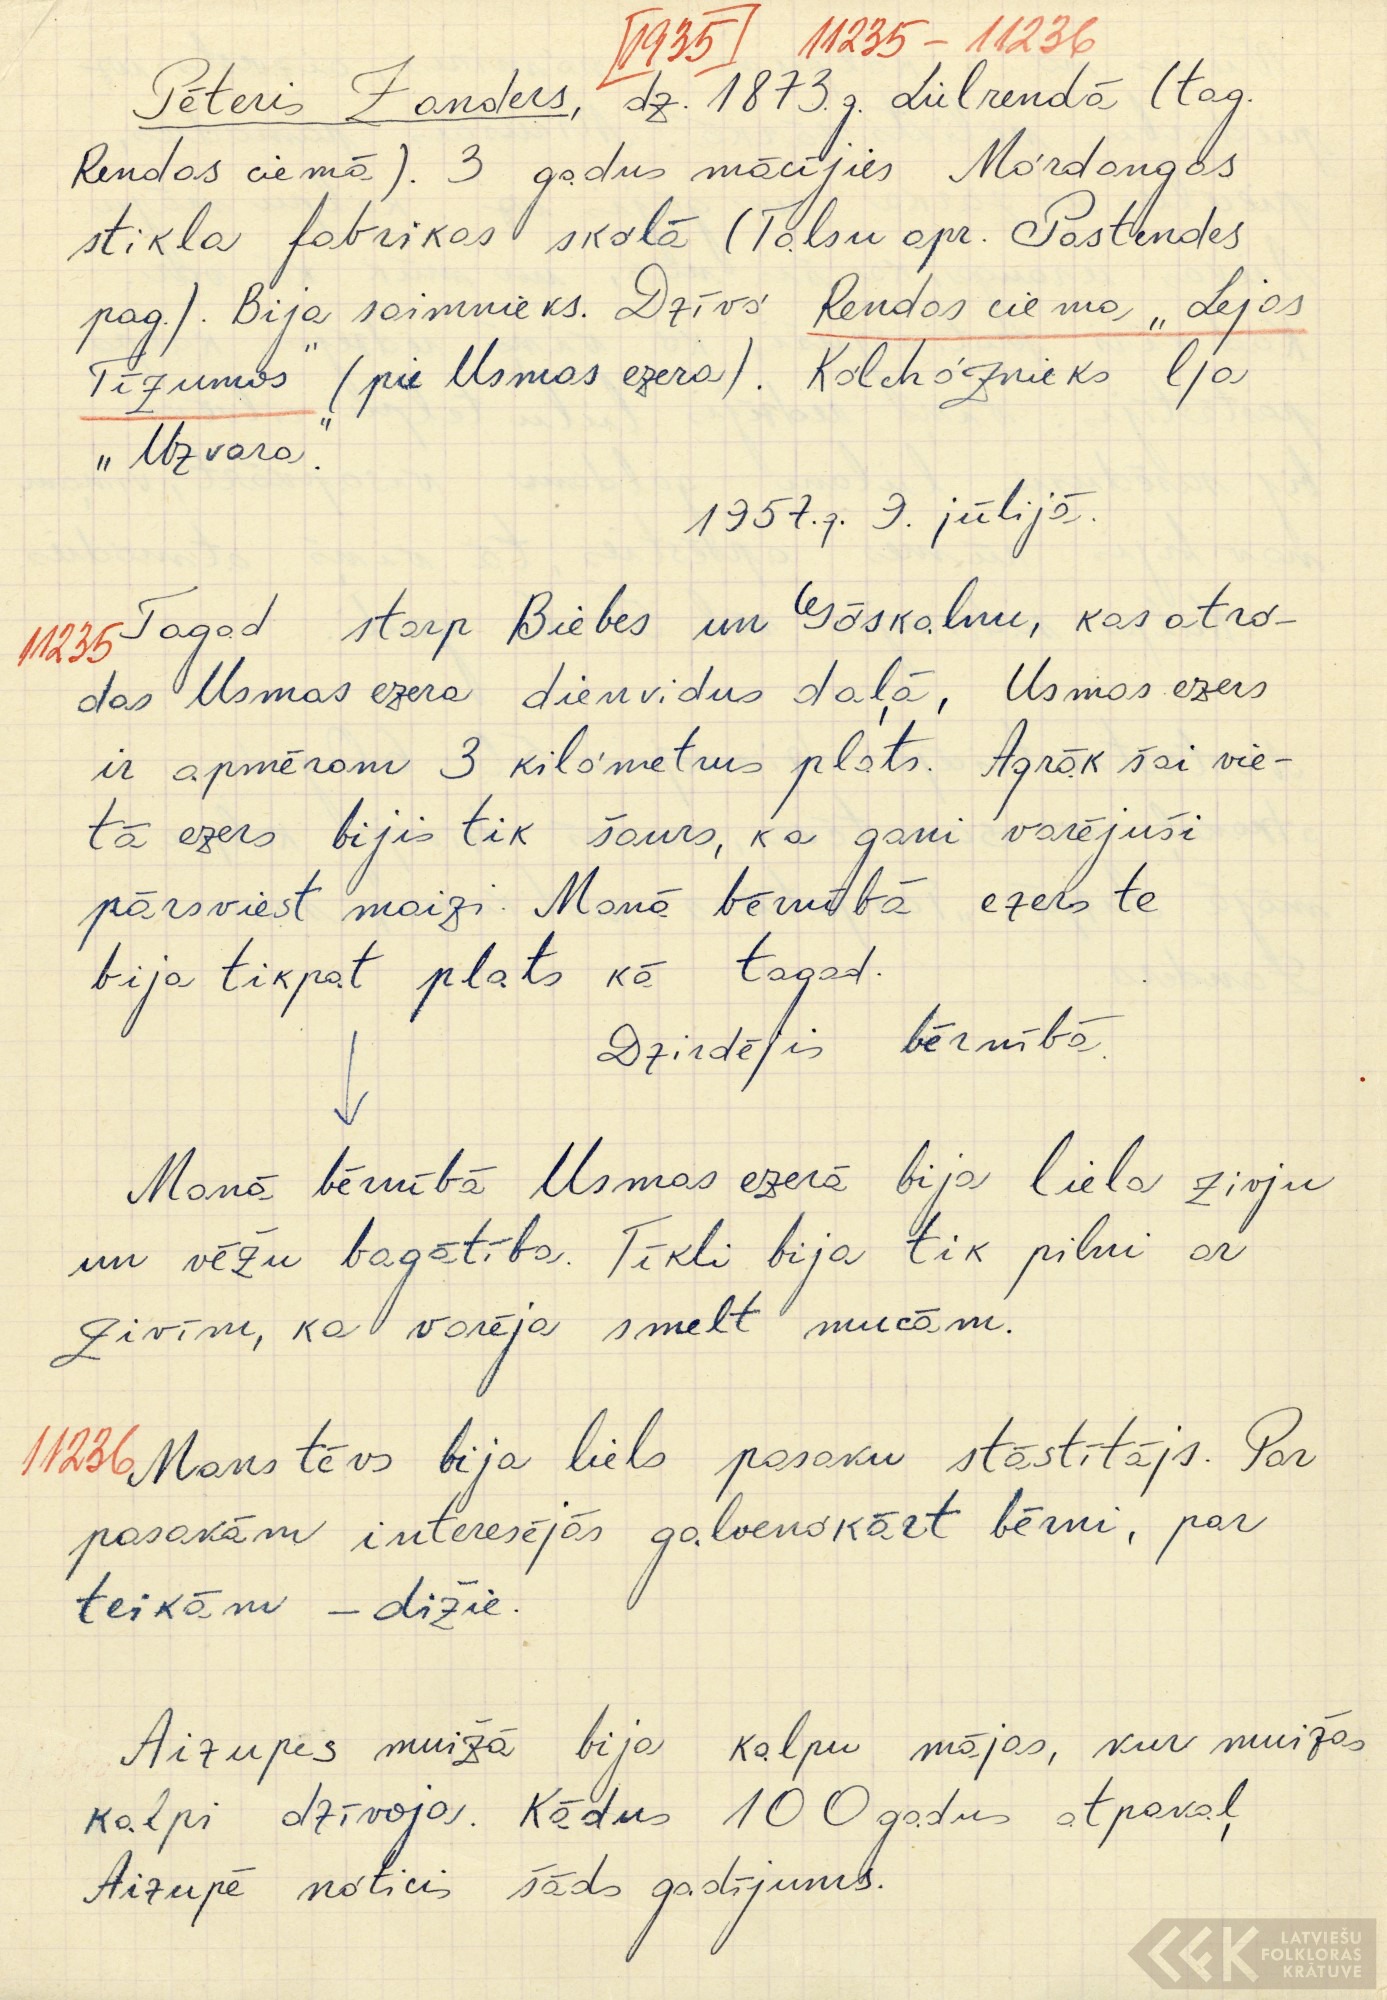 [1935] 11235 – 11236
Pēteris Zanders, dz. 1873.g. Lielrendā (tag.
Rendas ciemā). 3 gadus mācījies Mordangas
stikla fabrikas skolā (Talsu apr. Pastendes
pag.). Bija saimnieks. Dzīvo Rendas ciema „Lejas
Tīzumos" (pie Usmas ezera). Kolchóznieks l/a
„Uzvara".
1957.g. 9. jūlijā.
11235 Tagad starp Biebes un Gāskalnu, kas atro-
das Usmas ezera dienvidus daļā, Usmas ezers
ir apmēram 3 kilometrus plats. Agrāk šai vie-
tā ezers bijis tik šaurs, ka gani varējuši
pārsviest maizi. Manā bērnībā ezers te
bija tikpat plats kā tagad.
Dzirdējis bērnībā.
Manā bērnībā Usmas ezerā bija liela zivju
un vēžu bagātība. Tīkli bija tik pilni ar
zivīm, ka varēja smelt mucām.
11236 Mans tēvs bija liels pasaku stāstītājs. Par
pasakām interesējās galvenokārt bērni, par
teikām – dižie.
Aizupes muižā bija kalpu mājas, kur muižas
kalpi dzīvoja. Kādus 100 gadus atpakaļ
Aizupē noticis šāds gadījums.
LATVIEŠU
FOLKLORAS
KRĀTUVE